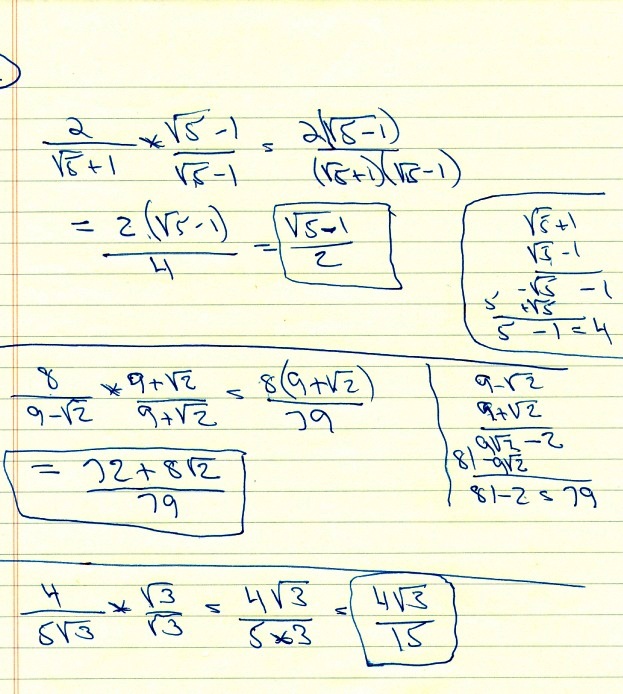 2/(√5+1) * (√5-1)/(√5-1) = 2(√5-1)/((√5+1)(√5-1))
= 2(√5-1)/4 = (√5-1)/2
√5+1
√5-1
-√5 -1
5 +√5
5 -1 = 4
8/(9-√2) * (9+√2)/(9+√2) = 8(9+√2)/79
= (72+8√2)/79
9-√2
9+√2
9√2 -2
81 -9√2
81-2 = 79
4/(5√3) * √3/√3 = 4√3/(5*3) = 4√3/15